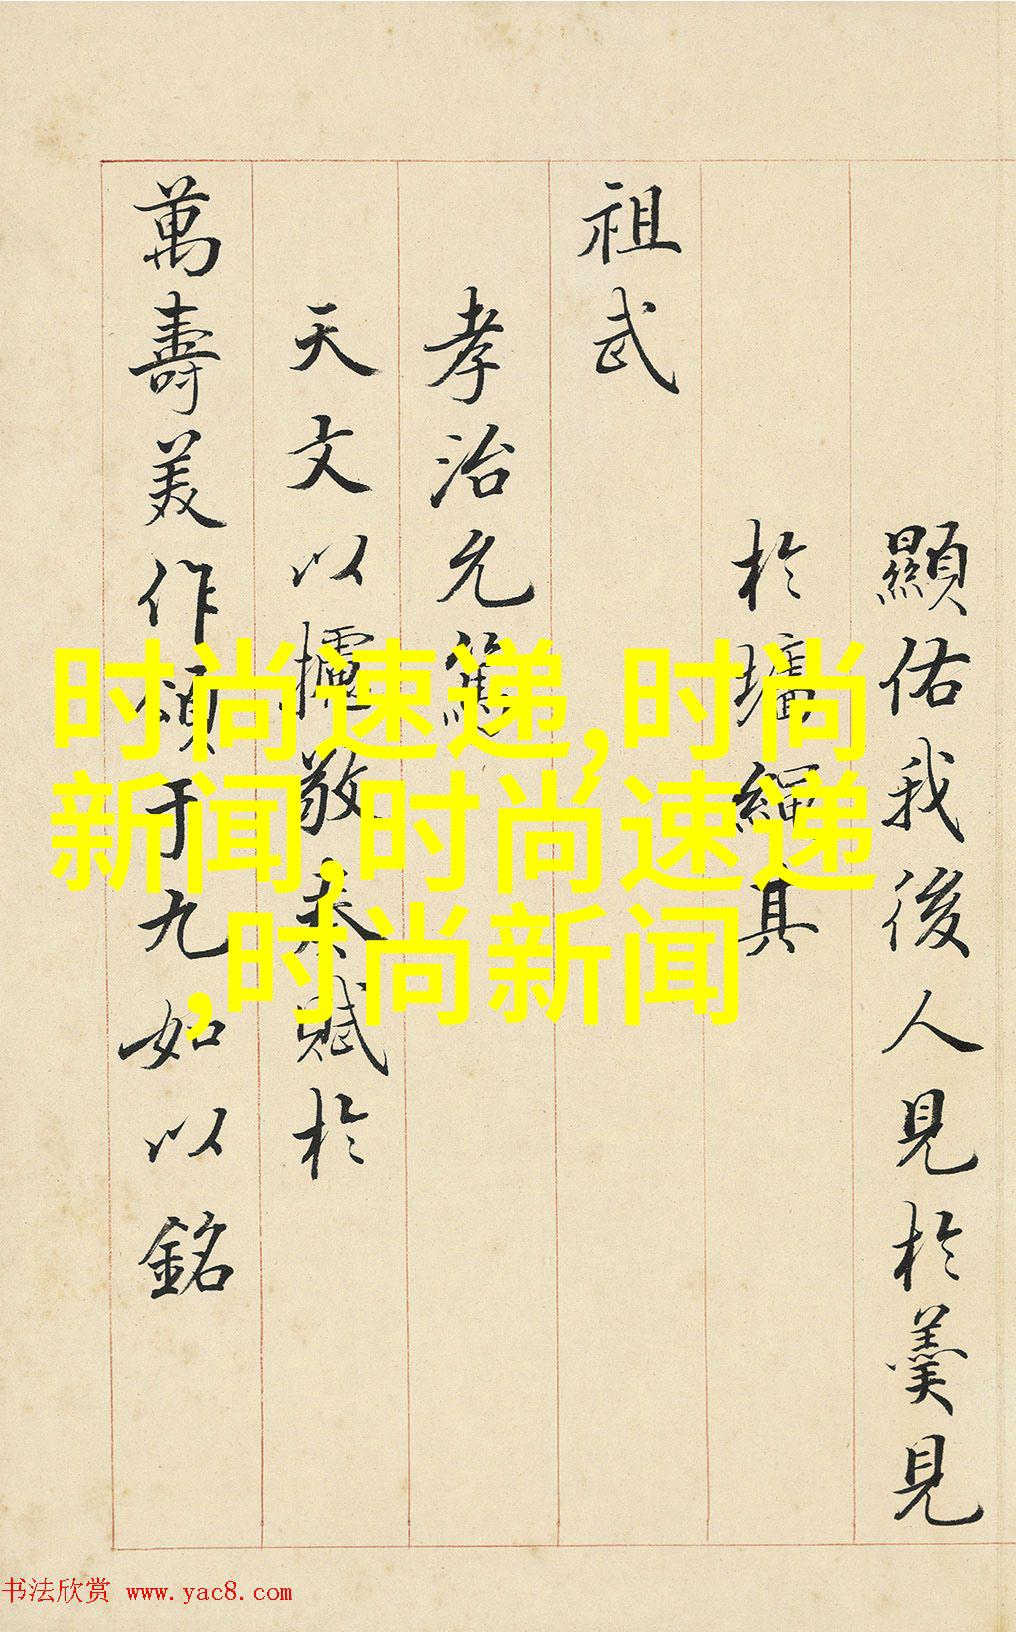 顯佑我後人見於羹見
於墻繩其
祖武
孝治允篤
天文以攄敬奏賦於
萬壽美作頌于九如以銘
时尚速递,时尚
新闻,时尚速递
,时尚新闻
书法欣赏 www.yac8.com